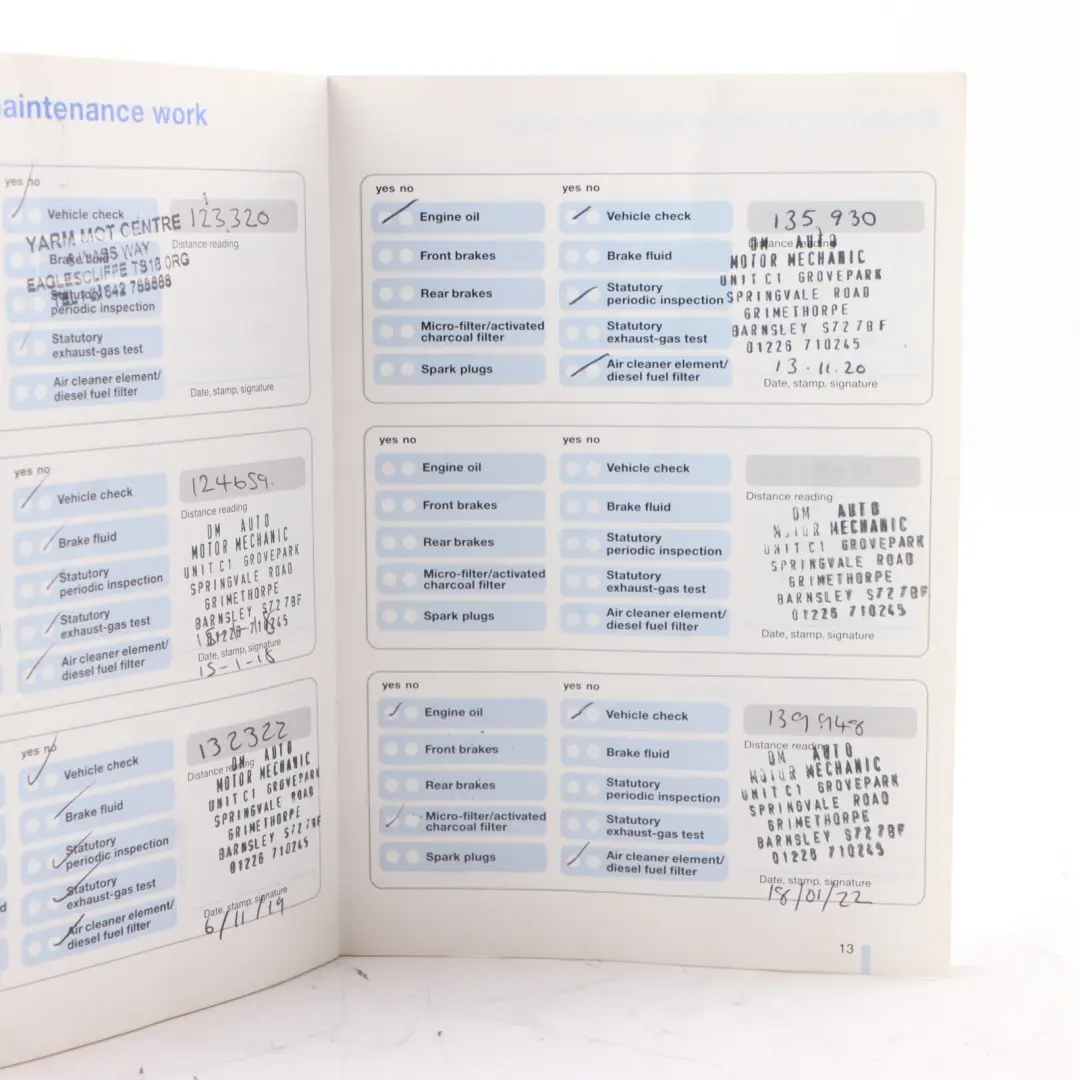 aintenance work
yes no
Vehicle check
123,320
YARM MOT CENTRE
Distance reading
WAY
EAGLESCLIFFE TS16 ORG
periodic inspection
Statutory
exhaust-gas test
Air cleaner element/
diesel fuel filter
Date, stamp, signature
yes no
Vehicle check
124659.
Distance reading
Brake fluid
DM AUTO
MOTOR MECHANIC
Statutory
periodic inspection
UNIT C1 GROVEPARK
SPRINGVALE ROAD
GRIMETHORPE
Statutory
exhaust-gas test
BARNSLEY S72 7BF
01226 710245
Air cleaner element/
diesel fuel filter
Date, stamp, signature
15-1-18
yes no
Vehicle check
132322
Distance reading
DM AUTO
MOTOR MECHANIC
Brake fluid
UNIT C1 GROVEPARK
SPRINGVALE ROAD
Statutory
periodic inspection
GRIMETHORPE
BARNSLEY S72 7BF
01226 710245
Statutory
exhaust-gas test
d
Air cleaner element/
diesel fuel filter
Date, stamp, signature
6/11/19
yes no
yes no
Engine oil
Vehicle check
135,930
Front brakes
Brake fluid
DM AUTO
MOTOR MECHANIC
UNIT C1 GROVEPARK
Rear brakes
Statutory
periodic inspection
SPRINGVALE ROAD
GRIMETHORPE
Micro-filter/activated
charcoal filter
Statutory
exhaust-gas test
BARNSLEY S72 7BF
01226 710245
Spark plugs
Air cleaner element/
diesel fuel filter
13.11.20
Date, stamp, signature
yes no
yes no
Engine oil
Vehicle check
Distance reading
Front brakes
Brake fluid
DM AUTO
MOTOR MECHANIC
Rear brakes
Statutory
periodic inspection
UNIT C1 GROVEPARK
SPRINGVALE ROAD
Micro-filter/activated
charcoal filter
Statutory
exhaust-gas test
GRIMETHORPE
BARNSLEY S72 7BF
01226 710245
Spark plugs
Air cleaner element/
diesel fuel filter
Date, stamp, signature
yes no
yes no
Engine oil
Vehicle check
139948
Distance reading
Front brakes
Brake fluid
DM AUTO
MOTOR MECHANIC
Rear brakes
Statutory
periodic inspection
UNIT C1 GROVEPARK
SPRINGVALE ROAD
Micro-filter/activated
charcoal filter
Statutory
exhaust-gas test
GRIMETHORPE
BARNSLEY S72 7BF
01226 710245
Spark plugs
Air cleaner element/
diesel fuel filter
Date, stamp, signature
18/01/22
13